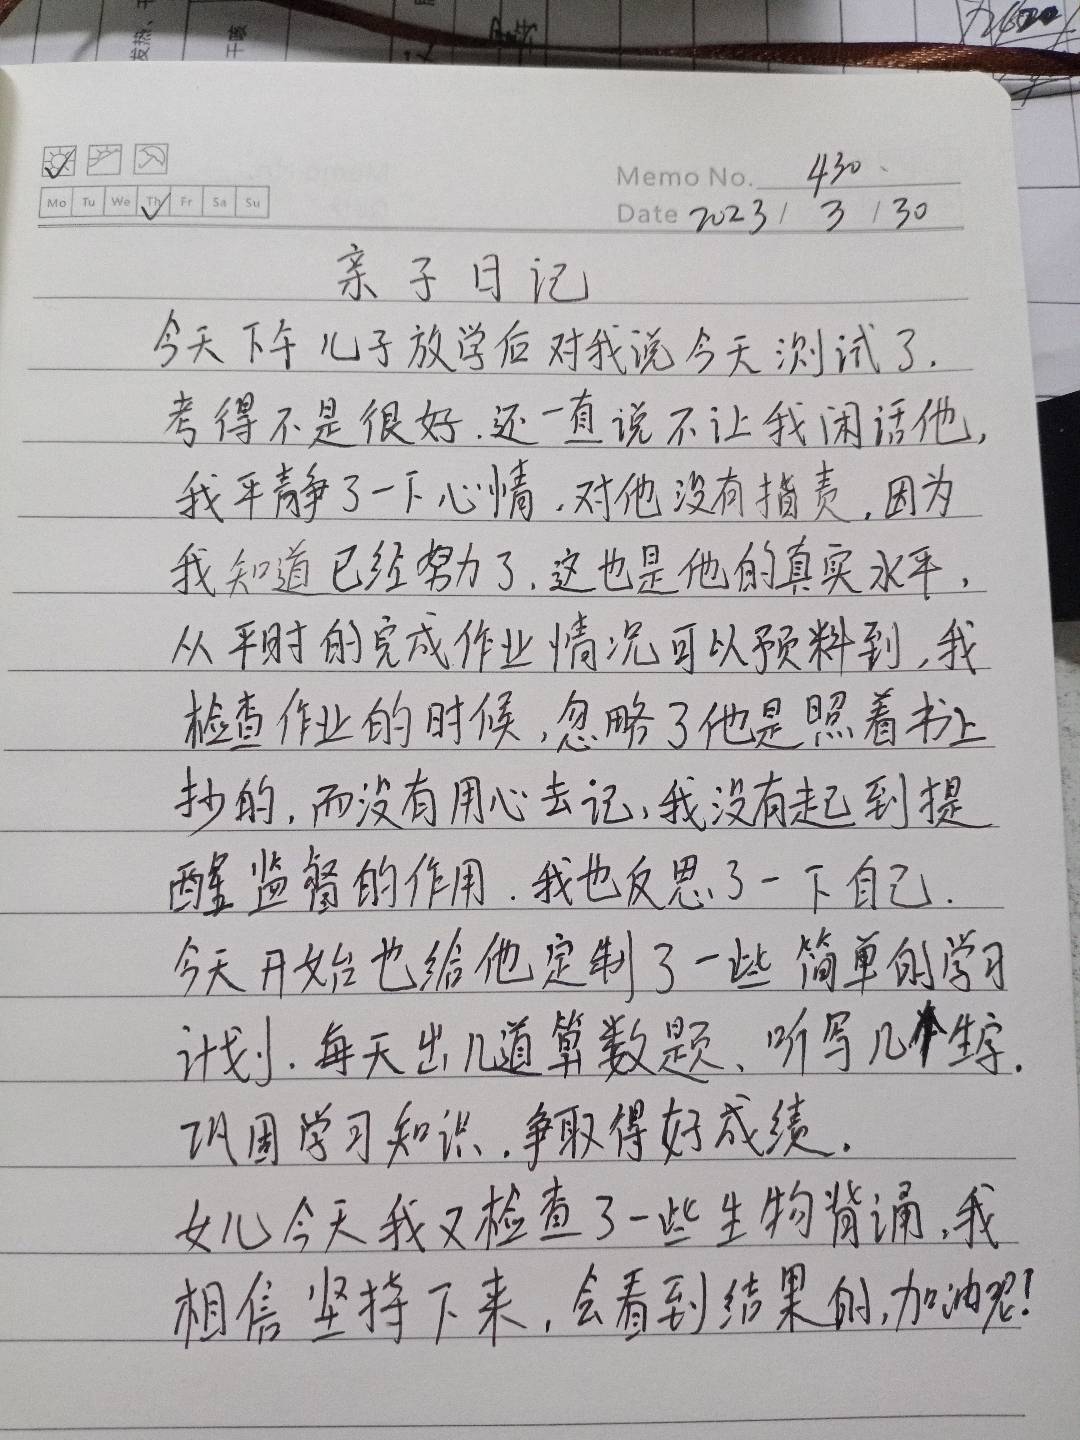 Memo No. 430
Mo Tu We Th Fr Sa Su
Date 2023 / 3 / 30
亲子日记
今天下午儿子放学后对我说今天测试了.
考得不是很好.还一直说不让我闲话他,
我平静了一下心情.对他没有指责,因为
我知道已经努力了.这也是他的真实水平,
从平时的完成作业情况可以预料到,我
检查作业的时候,忽略了他是照着书上
抄的,而没有用心去记、我没有起到提
醒监督的作用.我也反思了一下自己.
今天开始也给他定制了一些简单的学习
计划.每天出几道算数题、听写几个生字.
巩固学习知识.争取得好成绩.
女儿今天我又检查了一些生物背诵,我
相信坚持下来,会看到结果的,加油呢!